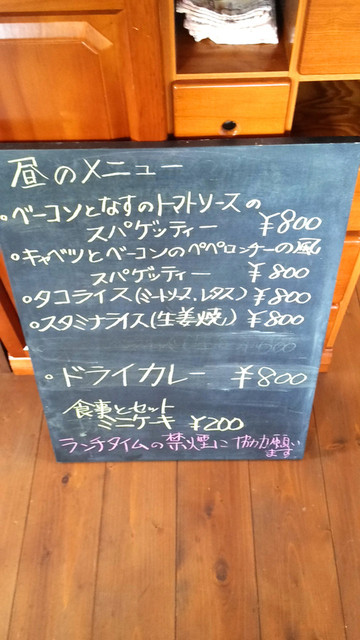 昼のメニュー
・ベーコンとなすのトマトソースの
スパゲッティー ¥800
・キャベツとベーコンのペペロンチーの風
スパゲッティー ¥800
・タコライス(ミートソース.レタス) ¥800
・スタミナライス(生姜焼) ¥800
・ドライカレー ¥800
食事とセット
ミニケーキ ¥200
ランチタイムの禁煙に協力願い
ます